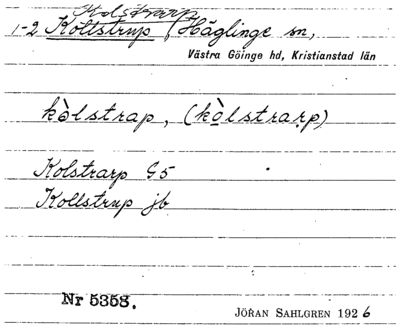 Kolstrarp
1-2 Kollstrup Häglinge sn,
Västra Göinge hd, Kristianstad län
kòlstrap, (kòlstrarp)
Kolstrarp G5
Kollstrup jb
Nr 5353.
JÖRAN SAHLGREN 1926